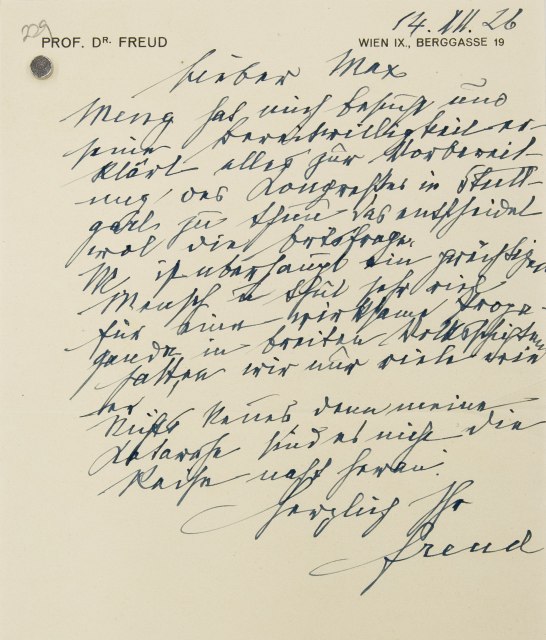 229
14. XII. 26
PROF. DR. FREUD
WIEN IX., BERGGASSE 19
Lieber Max
Meng hat mich besucht und
seine Bereitwilligkeit er-
klärt alles zur Vorbereit-
ung des Kongreßes in Stutt-
gart zu thun Das entscheidet
wol die Ortsfrage.
M. ist überhaupt ein prächtiger
Mensch u thut sehr viel
für eine wirksame Propa-
ganda in breiten Volksschichten
hatten wir nur viele wie
er
Nichts Neues denn meine
Katarrhe sind es nicht die
Reise naht heran.
Herzlich Ihr
Freud